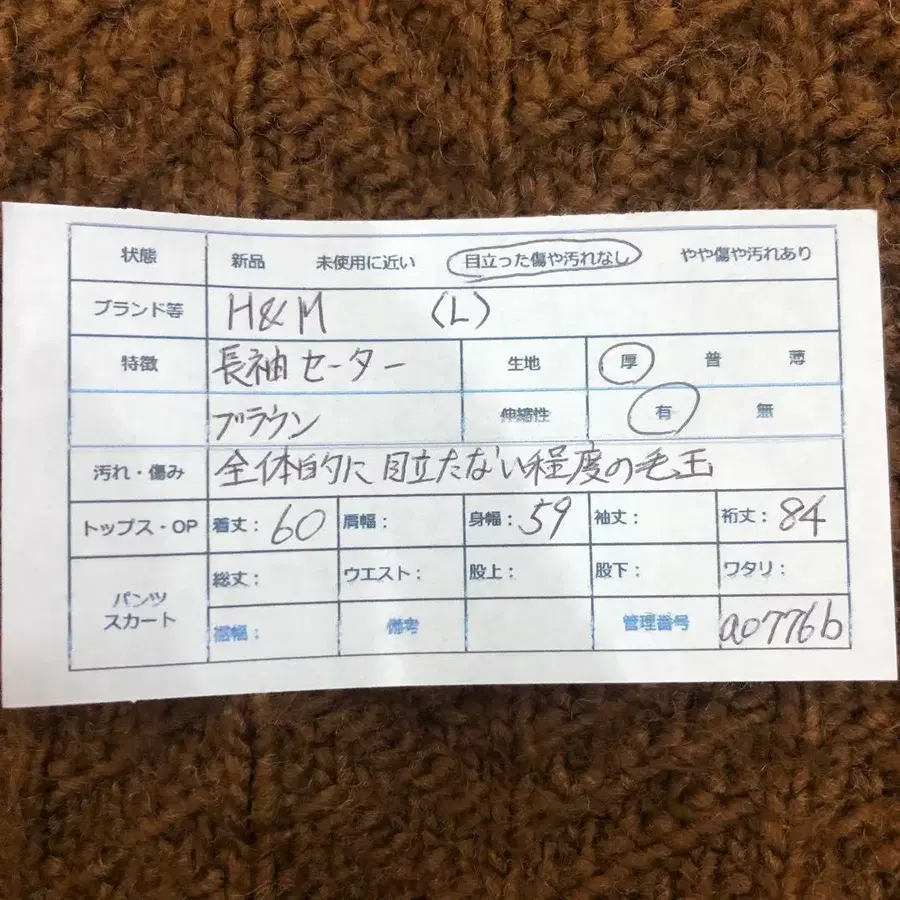 状態 新品 未使用に近い 目立った傷や汚れなし やや傷や汚れあり
ブランド等 H&M (L)
特徴 長袖セーター 生地 厚 普 薄
ブラウン 伸縮性 有 無
汚れ・傷み 全体的に目立たない程度の毛玉
トップス・OP 着丈: 60 肩幅: 身幅: 59 袖丈: 裄丈: 84
パンツ スカート 総丈: ウエスト: 股上: 股下: ワタリ:
裾幅: 備考 管理番号 a0776b